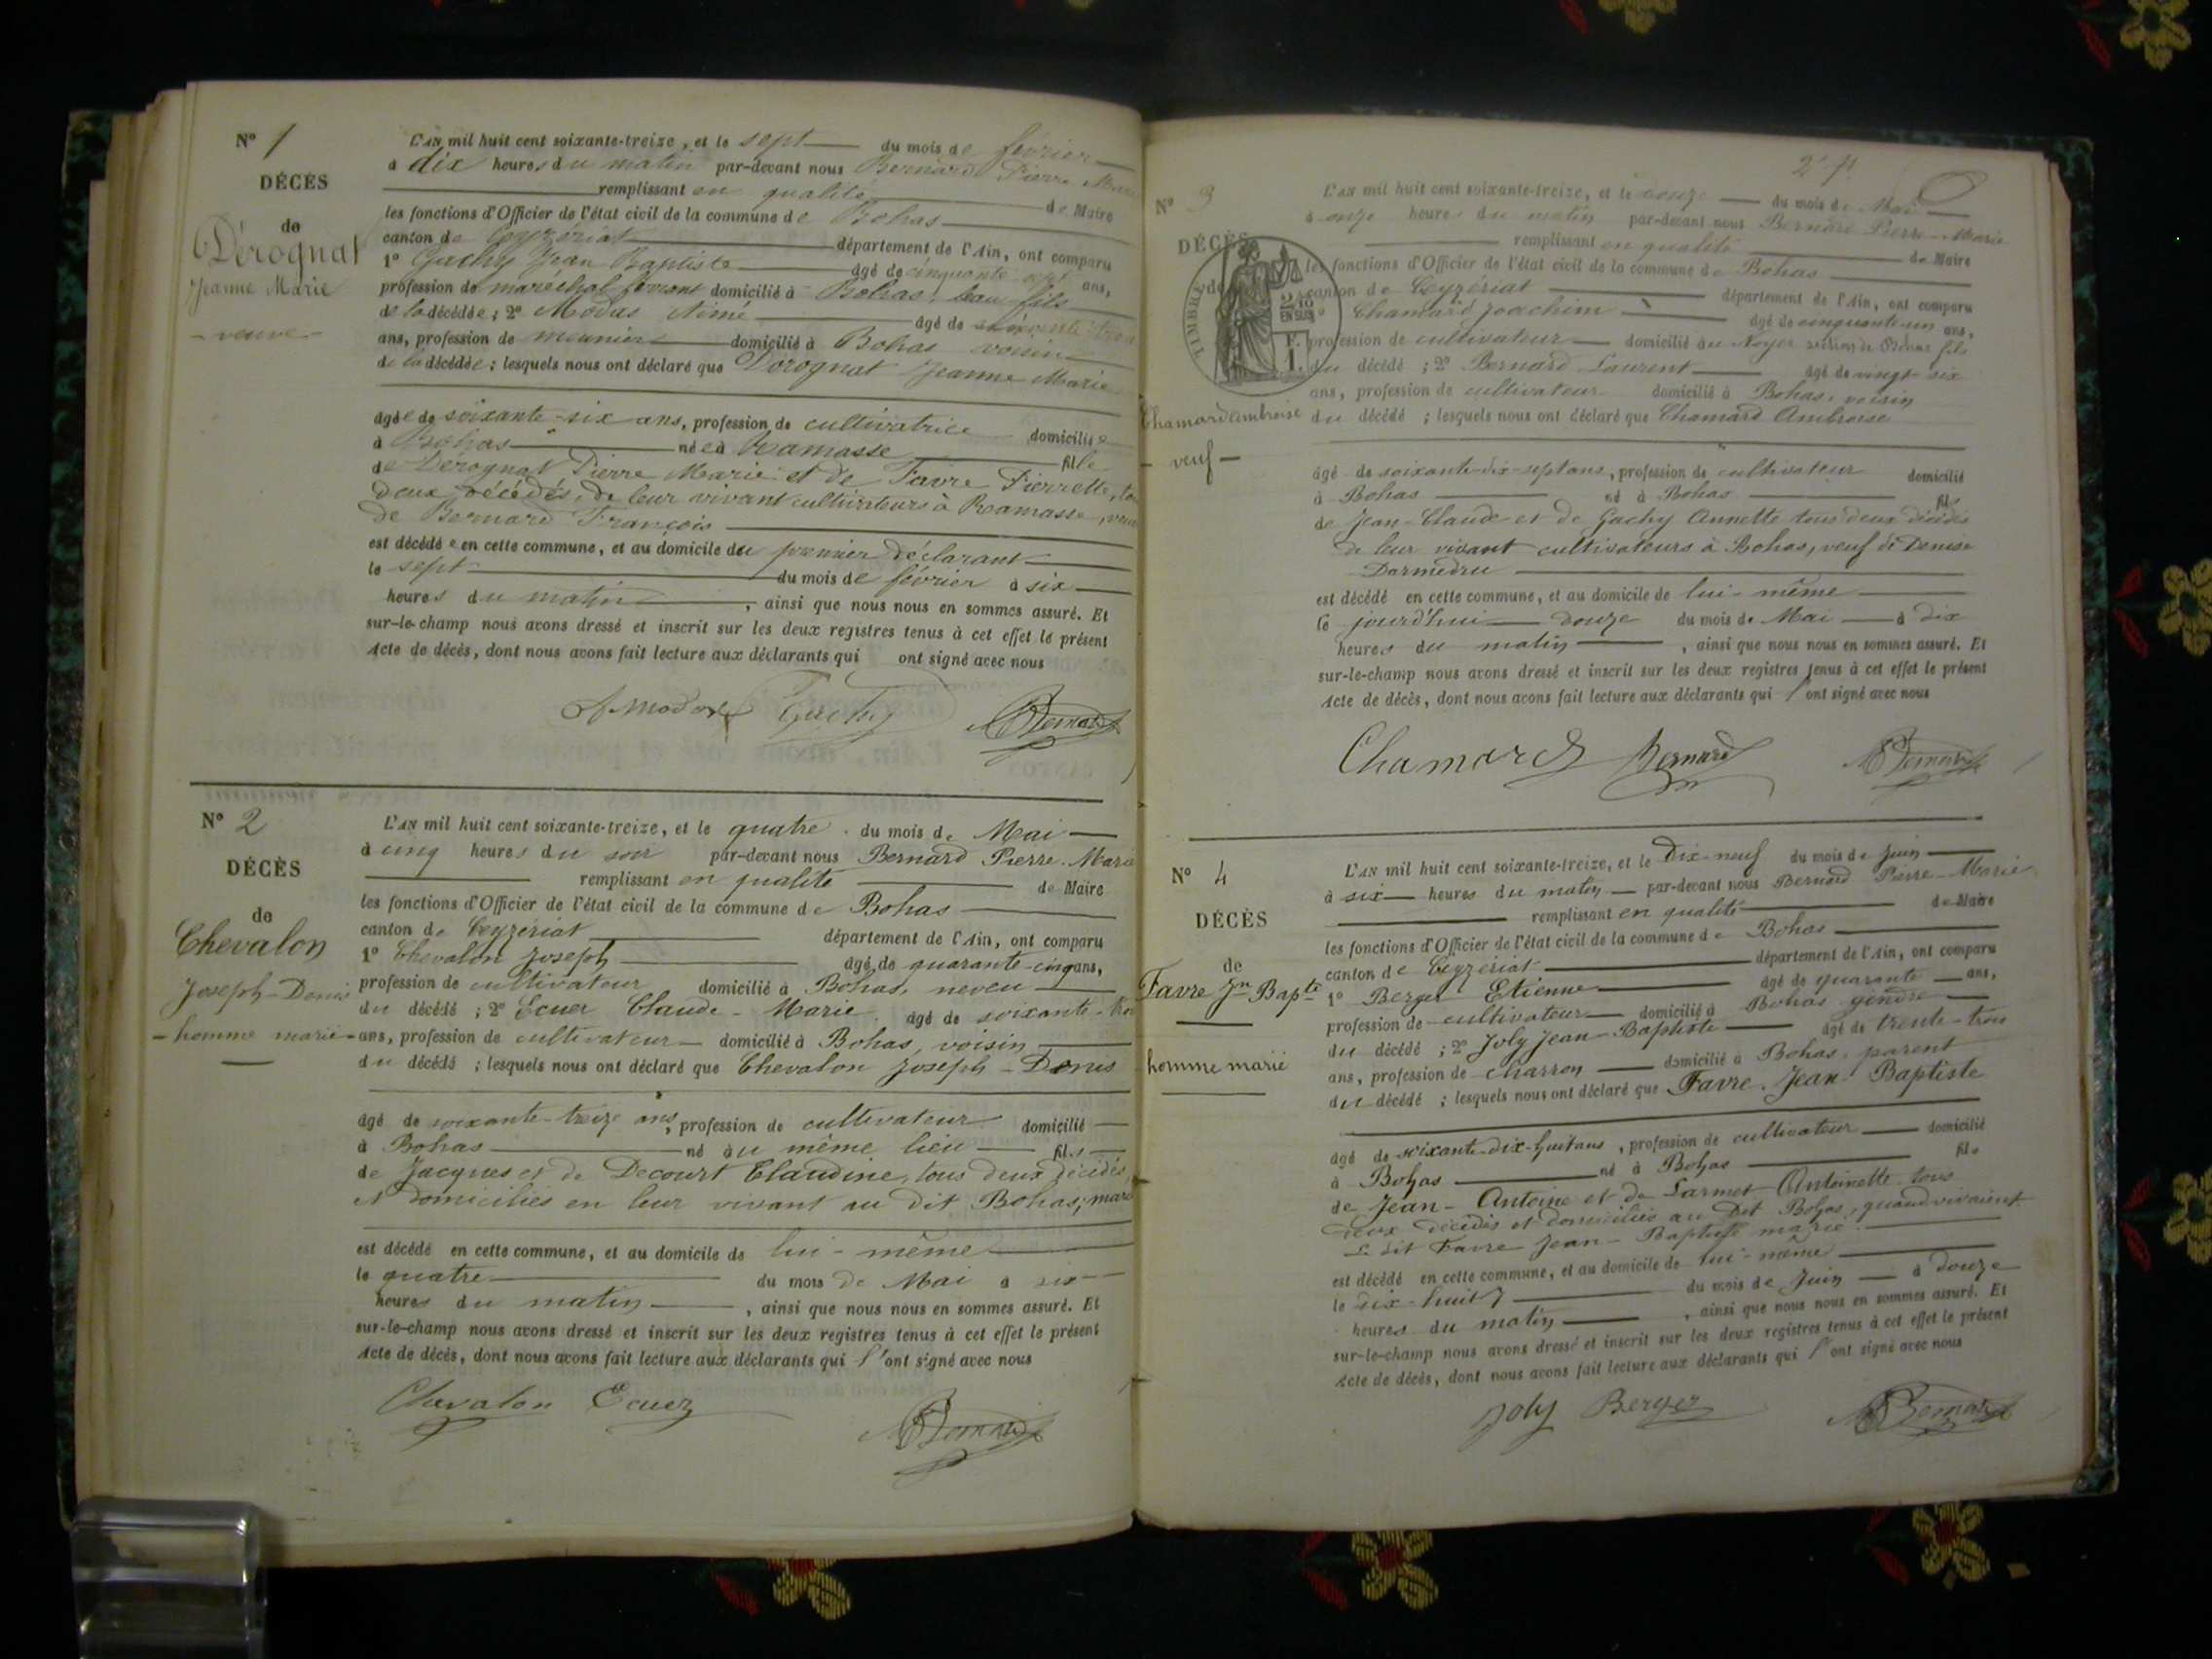 N° 1
DÉCÈS
de
Dérognat
Jeanne Marie
- veuve -
L'AN mil huit cent soixante-treize, et le sept du mois de février
à dix heures du matin par-devant nous Bernard Pierre Marie
remplissant en qualité de Maire
les fonctions d'Officier de l'état civil de la commune de Bohas
canton de Ceyzériat département de l'Ain, ont comparu
1° Gachy Jean Baptiste âgé de cinquante sept ans,
profession de maréchal ferrant domicilié à Bohas, beau-fils
de la décédée ; 2° Modas Aimé âgé de
ans, profession de meunier domicilié à Bohas voisin
de la décédée ; lesquels nous ont déclaré que Dérognat Jeanne Marie
âgée de soixante-six ans, profession de cultivatrice domiciliée
à Bohas née à Ramasse fille
de Dérognat Pierre Marie et de Favre Pierrette,
deux décédés, de leur vivant cultivateurs à Ramasse,
de Bernard François
est décédée en cette commune, et au domicile du premier déclarant
le sept du mois de février à six
heures du matin, ainsi que nous nous en sommes assuré. Et
sur-le-champ nous avons dressé et inscrit sur les deux registres tenus à cet effet le présent
Acte de décès, dont nous avons fait lecture aux déclarants qui ont signé avec nous
Gachy Bernard
N° 2
DÉCÈS
de
Chevalon
Joseph-Denis
- homme marié -
L'AN mil huit cent soixante-treize, et le quatre du mois de Mai
à cinq heures du soir par-devant nous Bernard Pierre-Marie
remplissant en qualité de Maire
les fonctions d'Officier de l'état civil de la commune de Bohas
canton de Ceyzériat département de l'Ain, ont comparu
1° Chevalon Joseph âgé de quarante-cinq ans,
profession de cultivateur domicilié à Bohas, neveu
du décédé ; 2° Ecuer Claude-Marie âgé de soixante-
ans, profession de cultivateur domicilié à Bohas, voisin
du décédé ; lesquels nous ont déclaré que Chevalon Joseph-Denis
âgé de soixante-treize ans, profession de cultivateur domicilié
à Bohas né au même lieu fils
de Jacques et de Decourt Claudine, tous deux décédés
et domiciliés en leur vivant au dit Bohas, marié
est décédé en cette commune, et au domicile de lui-même
le quatre du mois de Mai à six
heures du matin, ainsi que nous nous en sommes assuré. Et
sur-le-champ nous avons dressé et inscrit sur les deux registres tenus à cet effet le présent
Acte de décès, dont nous avons fait lecture aux déclarants qui l'ont signé avec nous
Chevalon Ecuer Bernard
N° 3
DÉCÈS
de
TIMBRE
2/10 EN SUS
Chamard Ambroise
- veuf -
L'AN mil huit cent soixante-treize, et le douze du mois de Mai
à onze heures du matin par-devant nous Bernard Pierre-Marie
remplissant en qualité de Maire
les fonctions d'Officier de l'état civil de la commune de Bohas
canton de Ceyzériat département de l'Ain, ont comparu
1° Chamard Joachim âgé de cinquante un ans,
profession de cultivateur domicilié au Noyer section de Bohas fils
du décédé ; 2° Bernard Laurent âgé de vingt-six
ans, profession de cultivateur domicilié à Bohas, voisin
du décédé ; lesquels nous ont déclaré que Chamard Ambroise
âgé de soixante-dix-sept ans, profession de cultivateur domicilié
à Bohas né à Bohas fils
de Jean-Claude et de Gachy Annette tous deux décédés
de leur vivant cultivateurs à Bohas, veuf de Denise
Darmedru
est décédé en cette commune, et au domicile de lui-même
le jourd'hui douze du mois de Mai à dix
heures du matin, ainsi que nous nous en sommes assuré. Et
sur-le-champ nous avons dressé et inscrit sur les deux registres tenus à cet effet le présent
Acte de décès, dont nous avons fait lecture aux déclarants qui l'ont signé avec nous
Chamard Bernard Bernard
N° 4
DÉCÈS
de
Favre Jn Bapte
homme marié
L'AN mil huit cent soixante-treize, et le Dix-neuf du mois de Juin
à six heures du matin par-devant nous Bernard Pierre-Marie
remplissant en qualité de Maire
les fonctions d'Officier de l'état civil de la commune de Bohas
canton de Ceyzériat département de l'Ain, ont comparu
1° Berger Etienne âgé de quarante ans,
profession de cultivateur domicilié à Bohas gendre
du décédé ; 2° Joly Jean-Baptiste âgé de trente-trois
ans, profession de charron domicilié à Bohas, parent
du décédé ; lesquels nous ont déclaré que Favre Jean Baptiste
âgé de soixante-dix-huit ans, profession de cultivateur domicilié
à Bohas né à Bohas fils
de Jean-Antoine et de Larmet Antoinette tous
deux décédés et domiciliés au Dit Bohas, quand vivaient
Le dit Favre Jean-Baptiste marié
est décédé en cette commune, et au domicile de lui-même
le dix-huit du mois de Juin à douze
heures du matin, ainsi que nous nous en sommes assuré. Et
sur-le-champ nous avons dressé et inscrit sur les deux registres tenus à cet effet le présent
Acte de décès, dont nous avons fait lecture aux déclarants qui l'ont signé avec nous
Joly Berger Bernard